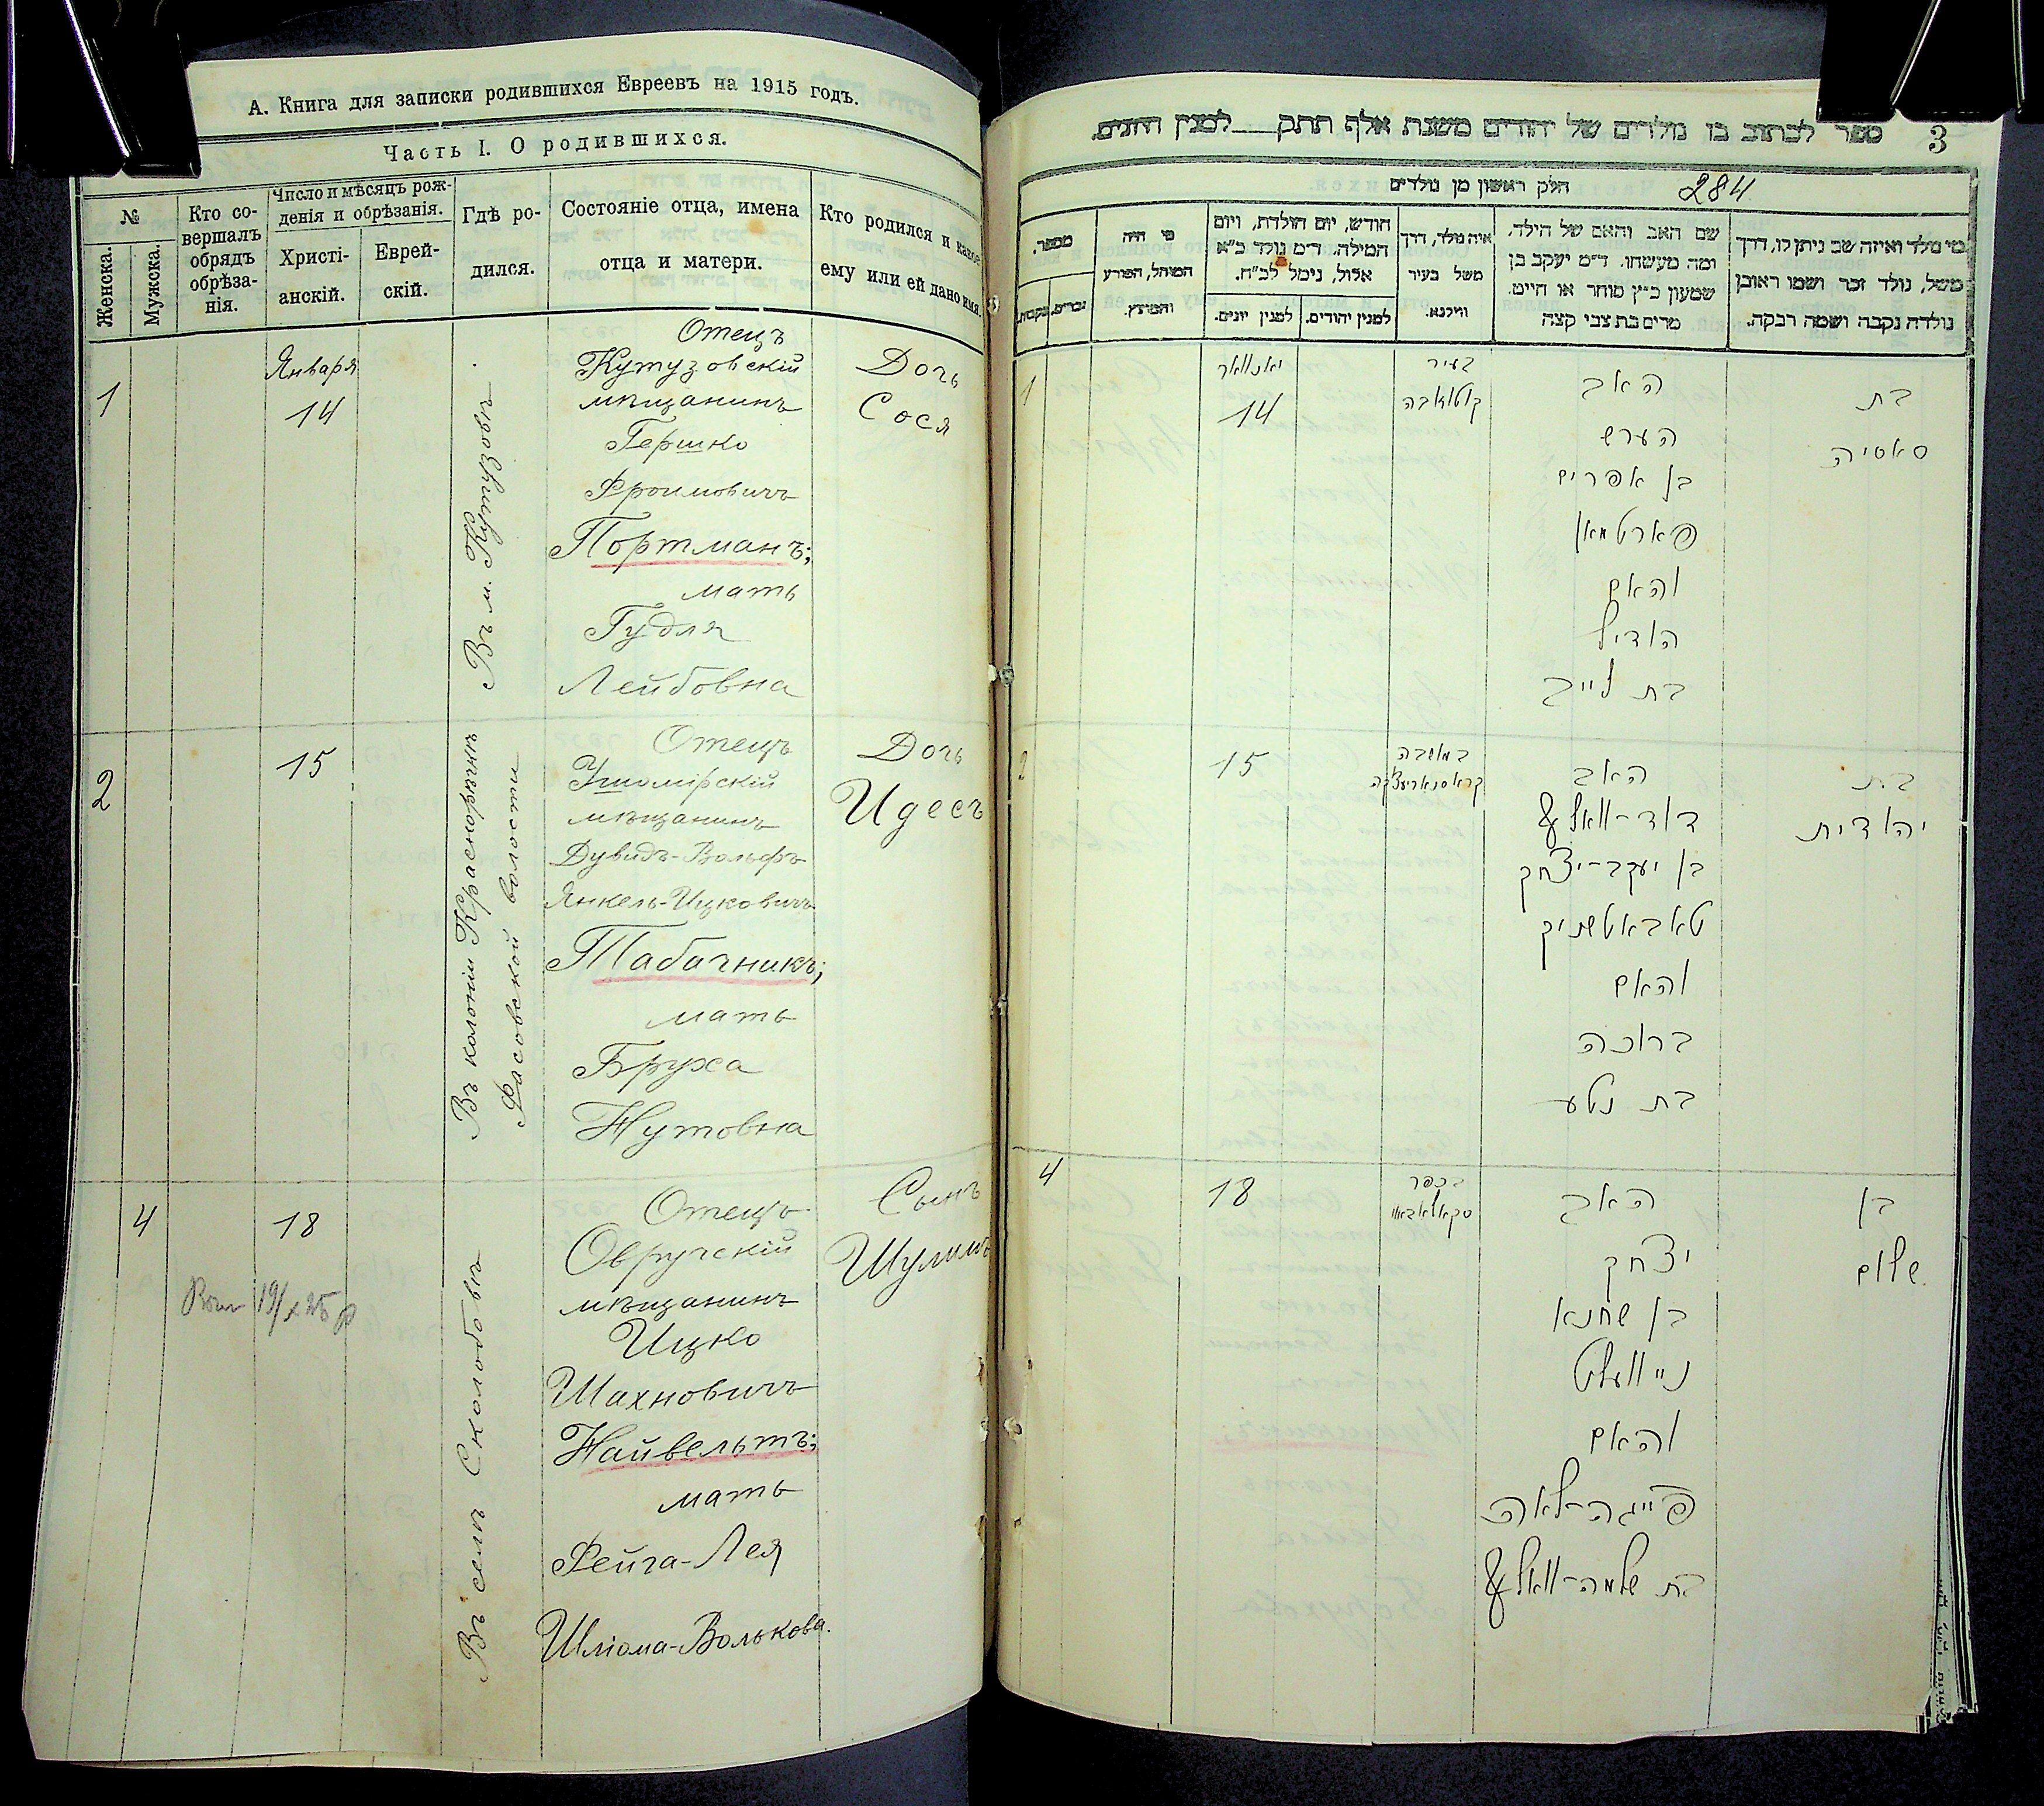 А. Книга для записки родившихся Евреевъ на 1915 годъ.
Часть I. О родившихся.
№
Женска.
Мужска.
Кто со-
вершалъ
обрядъ
обрѣза-
нія.
Число и мѣсяцъ рож-
денія и обрѣзанія.
Христі-
анскій.
Еврей-
скій.
Гдѣ ро-
дился.
Состояніе отца, имена
отца и матери.
Кто родился и какое
ему или ей дано имя.
1
Января
14
Въ м. Кутузовѣ.
Отецъ
Кутузовскій
мѣщанинъ
Гершко
Фроимовичъ
Портманъ;
мать
Гудля
Лейбовна
Дочь
Сося
2
15
Въ колоніи Краснорѣчкѣ
Фасовской волости
Отецъ
Ушомірскій
мѣщанинъ
Дувидъ-Вольфъ
Янкель-Ицковичъ
Табачникъ;
мать
Бруха
Нутовна
Дочь
Идесъ
4
18
19/X 25
Въ селѣ Сколобовѣ
Отецъ
Овручскій
мѣщанинъ
Ицко
Шахновичъ
Найвельтъ;
мать
Фейга-Лея
Шліома-Волькова.
Сынъ
Шулимъ
ספר לכתוב בו נולדים של יהודים משנת אלף תתק___למנין היונים.
3
חלק ראשון מן נולדים
284
מספר.
זכרים.
נקבות.
מי היה
המוהל, הפורע
והמוצץ.
חודש, יום הולדת, ויום
המילה. ד״מ נולד כ״א
אלול, נימל לכ״ח.
למנין יונים.
למנין יהודים.
איה נולד, דרך
משל בעיר
ווילנא.
שם האב והאם של הילד,
ומה מעשהו. ד״מ יעקב בן
שמעון כ״ץ סוחר או חייט.
מרים בת צבי קצה
מי נולד ואיזה שם ניתן לו, דרך
משל, נולד זכר ושמו ראובן
נולדה נקבה ושמה רבקה.
1
יאנוואר
14
בעיר
קוטוזבה
האב
הערש
בן אפרים
פארטמאן
והאם
הודיל
בת לייב
בת
סאסיה
2
15
במושבה
קראסנאריעצקה
האב
דוד-וואלף
בן יעקב-יצחק
טאבאטשניק
והאם
ברוכה
בת נטע
בת
יהודית
4
18
בכפר
האב
יצחק
בן שחנא
נייוועלט
והאם
פייגה-לאה
בת שלמה-וואלף
בן
שלום.